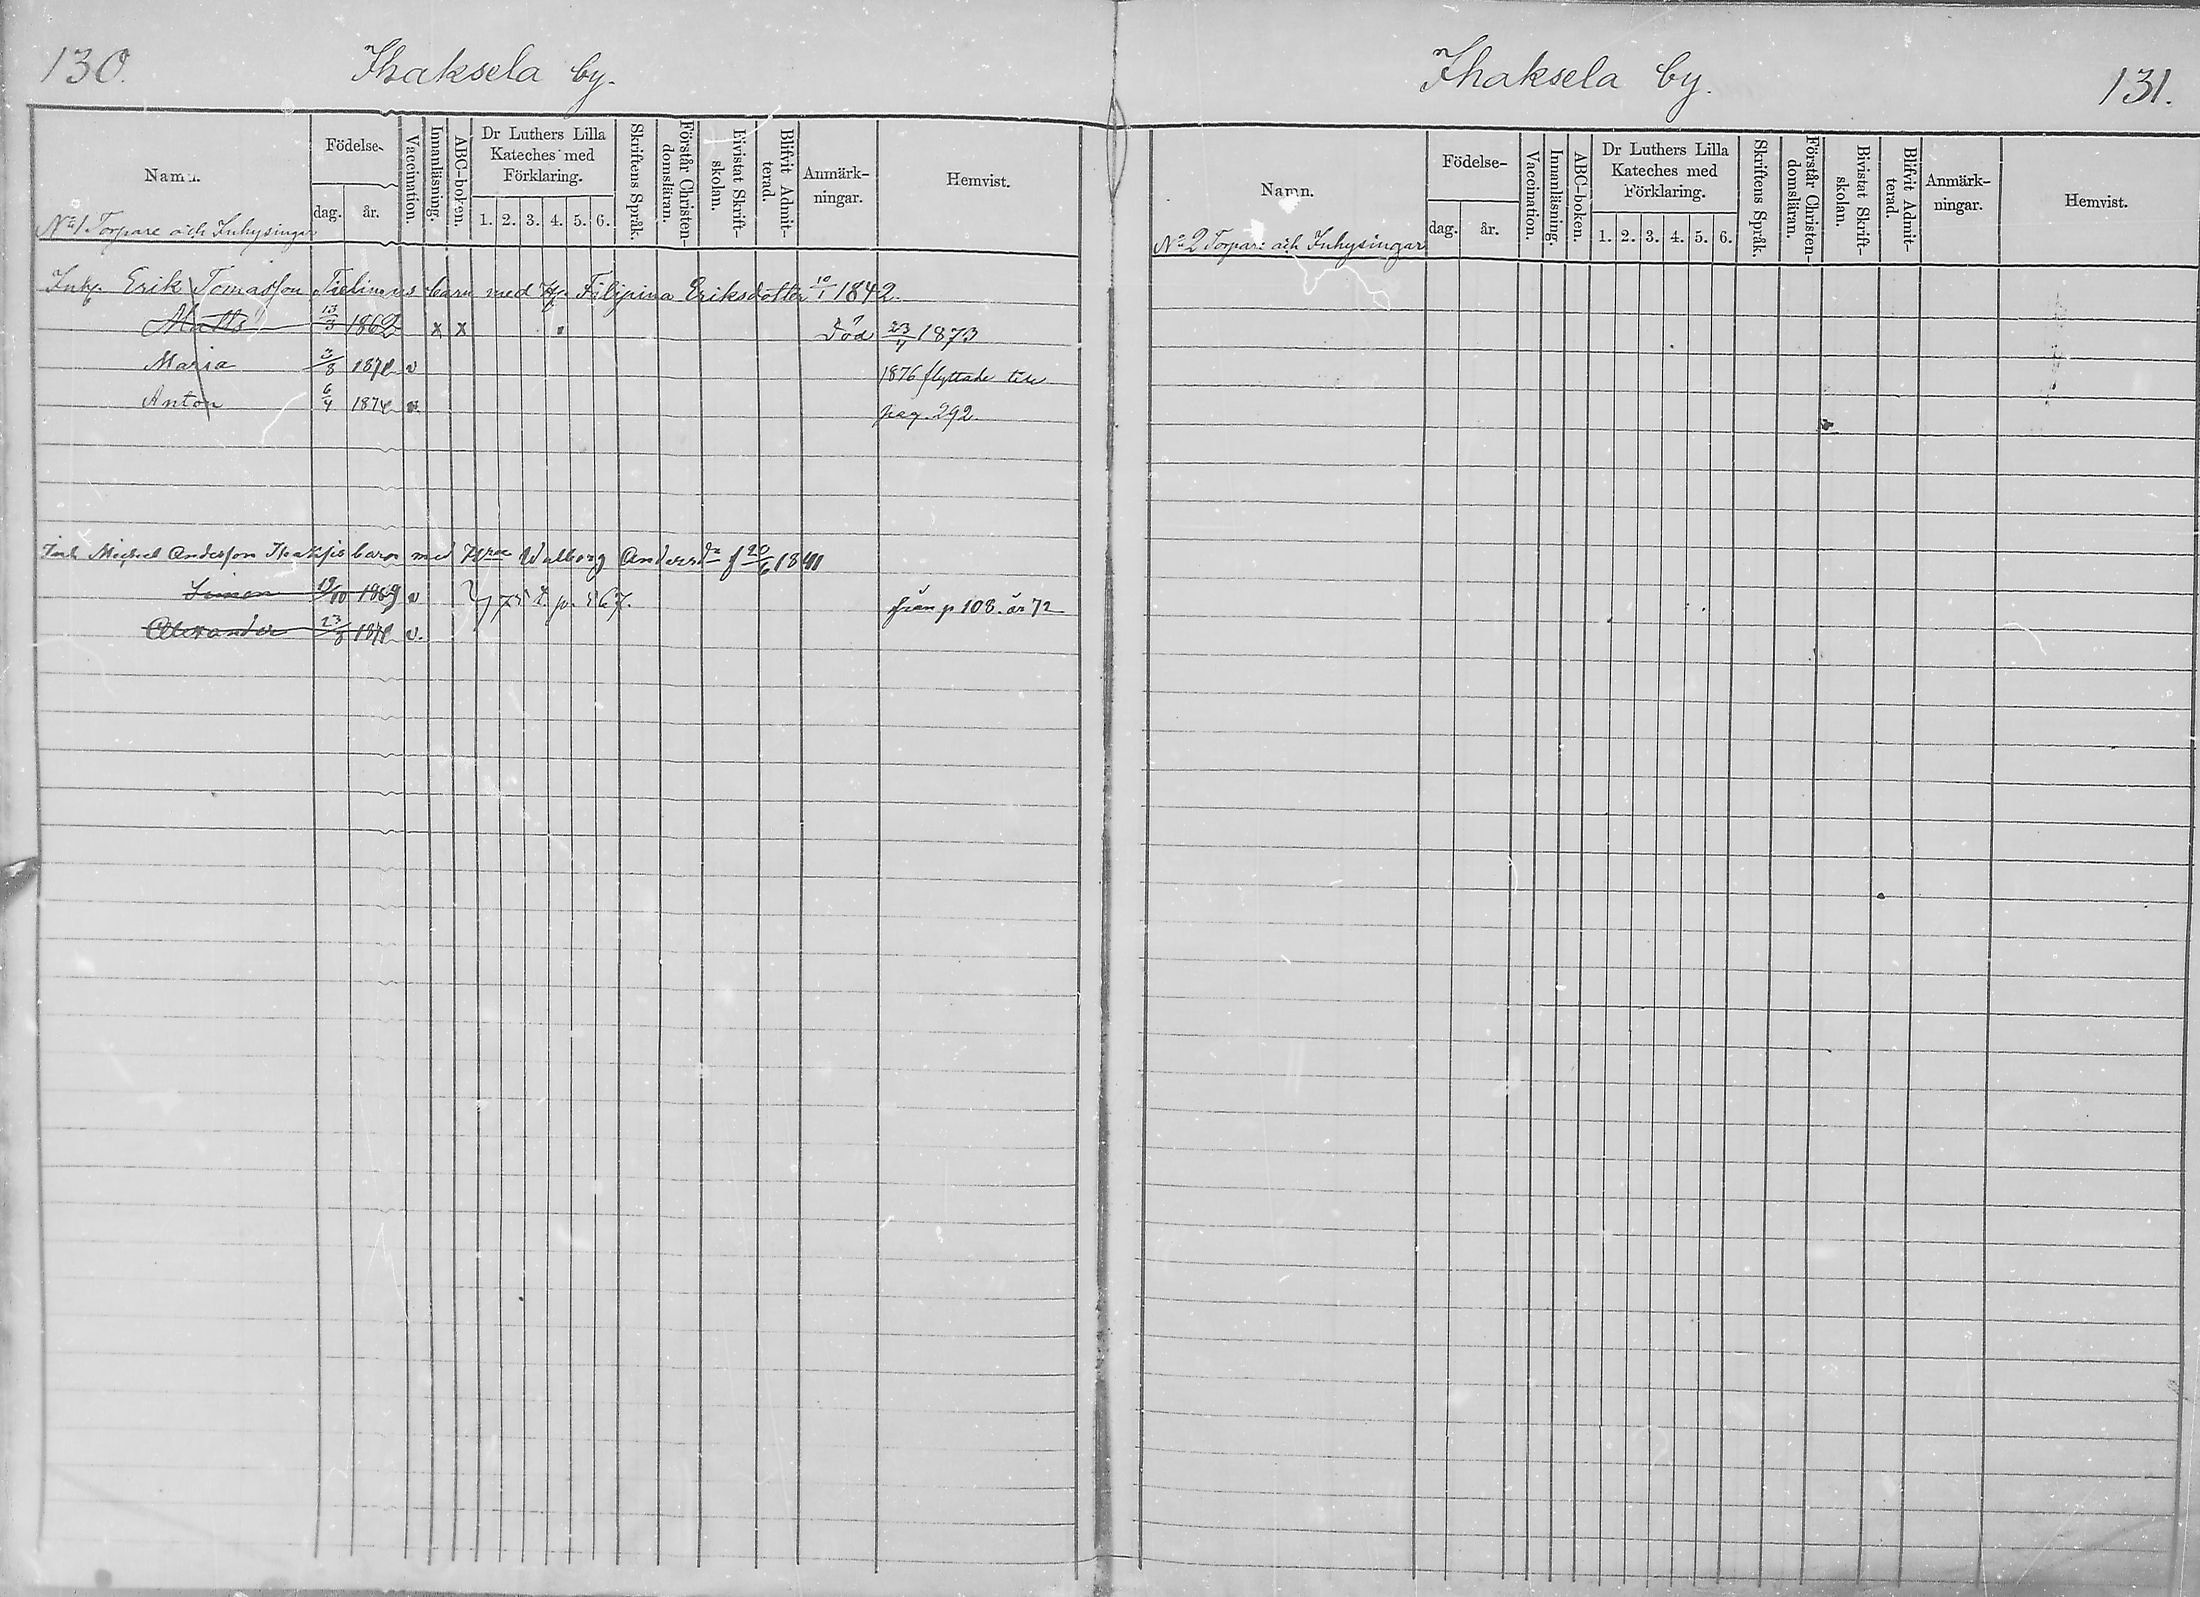 130.
Ihaksela by.
Namn.
Födelse-
dag. år.
Vaccination.
Innanläsning.
ABC-boken.
Dr Luthers Lilla
Kateches med
Förklaring.
1. 2. 3. 4. 5. 6.
Skriftens Språk.
Förstår Christen-
domsläran.
Bivistat Skrift-
skolan.
Blifvit Admit-
terad.
Anmärk-
ningar.
Hemvist.
No 1 Torpare och Inhysingar
Inh. Erik Tomasson barn med Filipina Eriksdotter 10/1 1842.
Matts 13/3 1862 x x Död 23/4 1873
Maria 3/8 1871 v 1876 flyttade till
Anton 6/4 1874 v. pag. 292.
Inh. Michel Andersson barn med Walborg Andersdr f 20/6 1841
Simon 19/10 1869 v 75 t. p. 567. från p 108. år 72
Alexander 23/8 1871 v.
Ihaksela by.
131.
Namn.
Födelse-
dag. år.
Vaccination.
Innanläsning.
ABC-boken.
Dr Luthers Lilla
Kateches med
Förklaring.
1. 2. 3. 4. 5. 6.
Skriftens Språk.
Förstår Christen-
domsläran.
Bivistat Skrift-
skolan.
Blifvit Admit-
terad.
Anmärk-
ningar.
Hemvist.
No 2 Torpare och Inhysingar